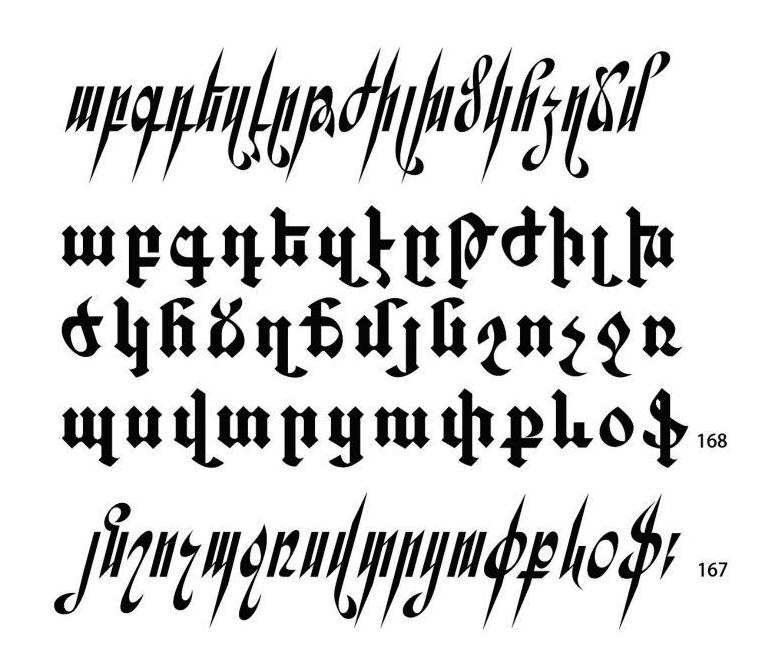 աբգդեզէըթժիլխծկհձղճմ
աբգդեզէըթժիլխ
ծկհձղճմյնշոչջռ
պսվտրցուփքևօֆ 168
յնշոչպջռսվտրցուփքևօֆ։ 167